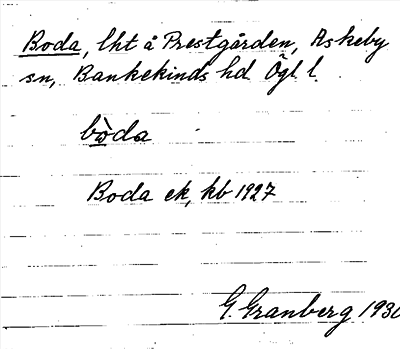 Boda, lht å Prestgården, Askeby
sn, Bankekinds hd Ögl l.
bòda
Boda ek, kb 1927
G. Granberg 1930